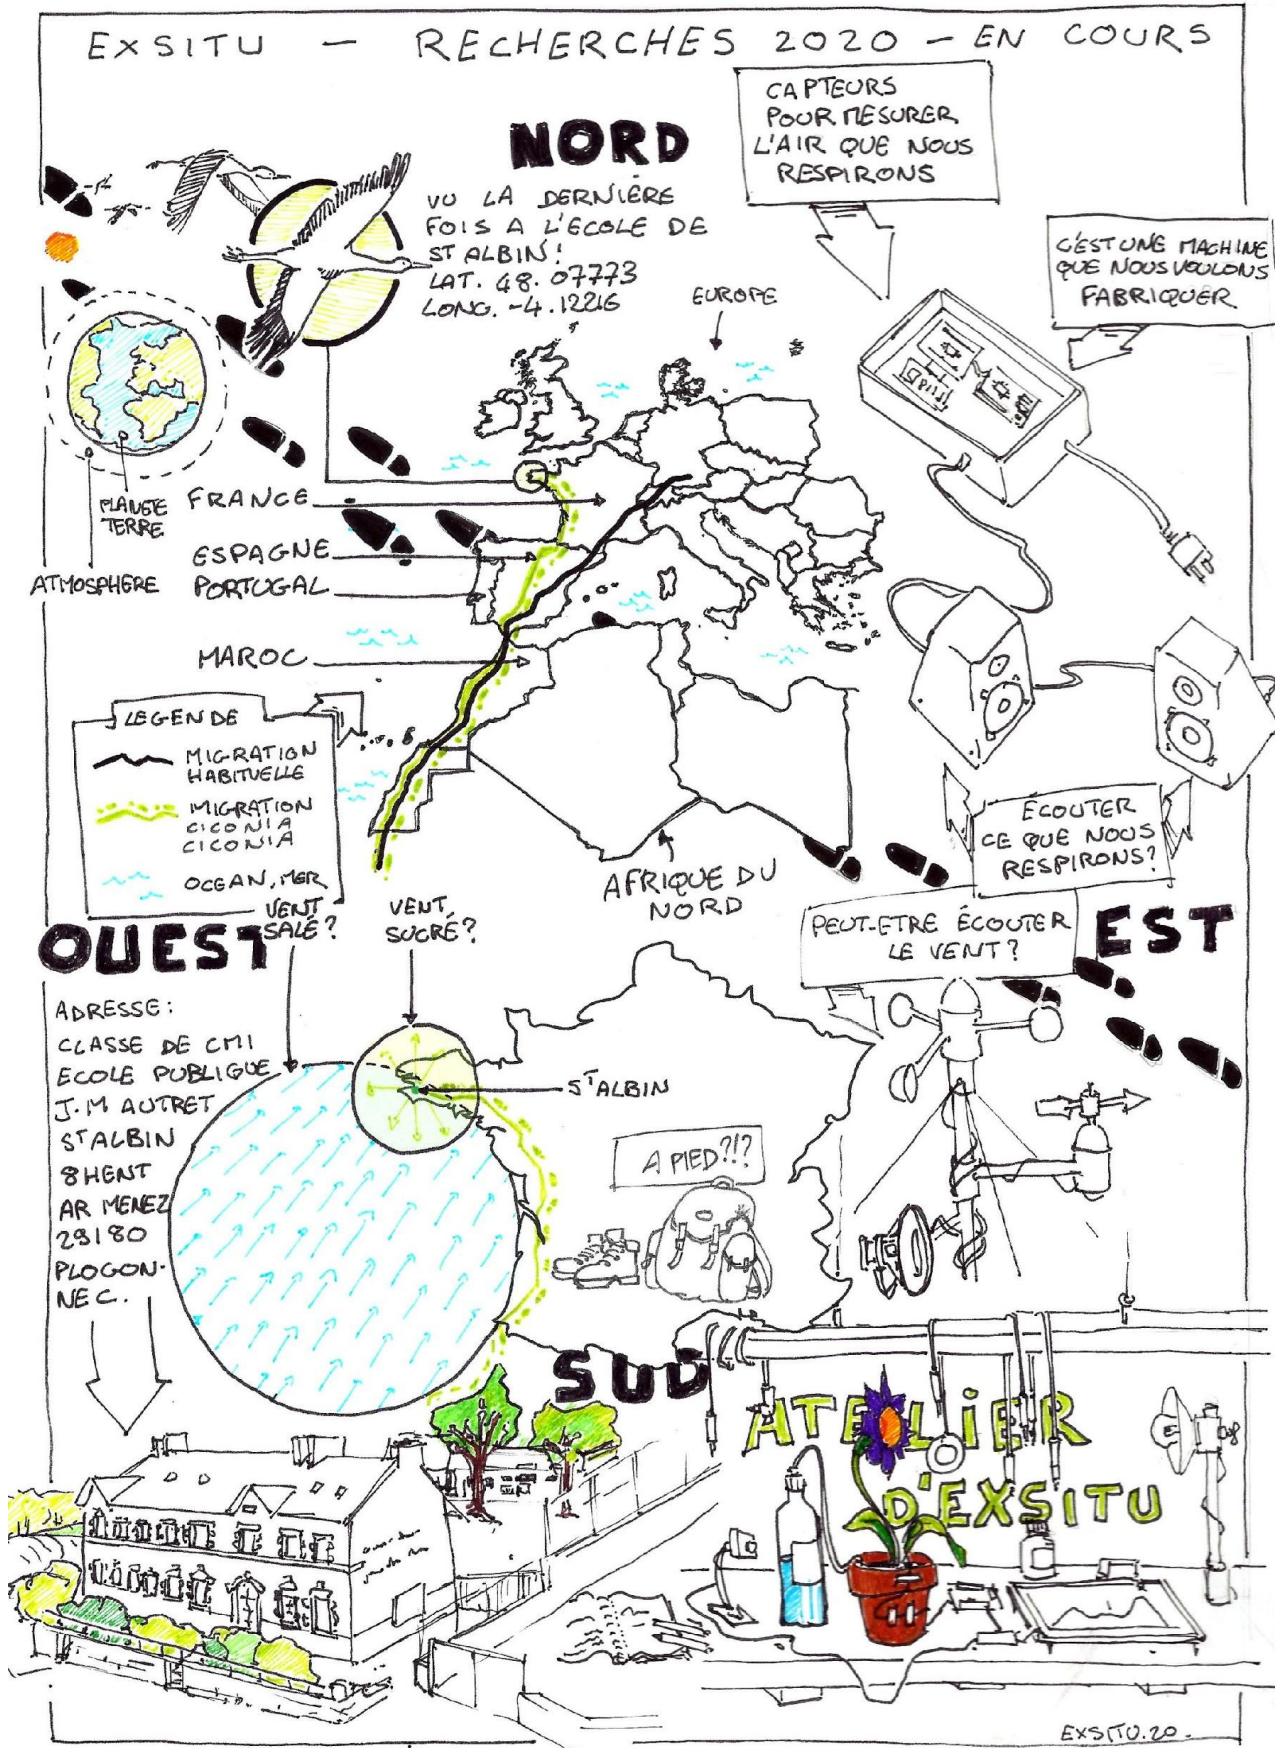 EXSITU – RECHERCHES 2020 – EN COURS
CAPTEURS
POUR MESURER
L'AIR QUE NOUS
RESPIRONS
NORD
VU LA DERNIÈRE
FOIS A L'ECOLE DE
ST ALBIN!
LAT. 48.07773
LONG. -4.12216
C'EST UNE MACHINE
QUE NOUS VOULONS
FABRIQUER
EUROPE
PLANETE
TERRE
ATMOSPHÈRE
FRANCE
ESPAGNE
PORTUGAL
MAROC
LEGENDE
MIGRATION
HABITUELLE
MIGRATION
CICONIA
CICONIA
OCEAN, MER
AFRIQUE DU
NORD
ÉCOUTER
CE QUE NOUS
RESPIRONS?
PEUT-ETRE ÉCOUTER
LE VENT?
OUEST
VENT
SALÉ?
VENT
SUCRÉ?
EST
ADRESSE:
CLASSE DE CM1
ECOLE PUBLIQUE
J.M AUTRET
ST ALBIN
8 HENT
AR MENEZ
29180
PLOGON-
NEC.
ST ALBIN
A PIED?!?
SUD
ATELIER
D'EXSITU
EXSITU.20.